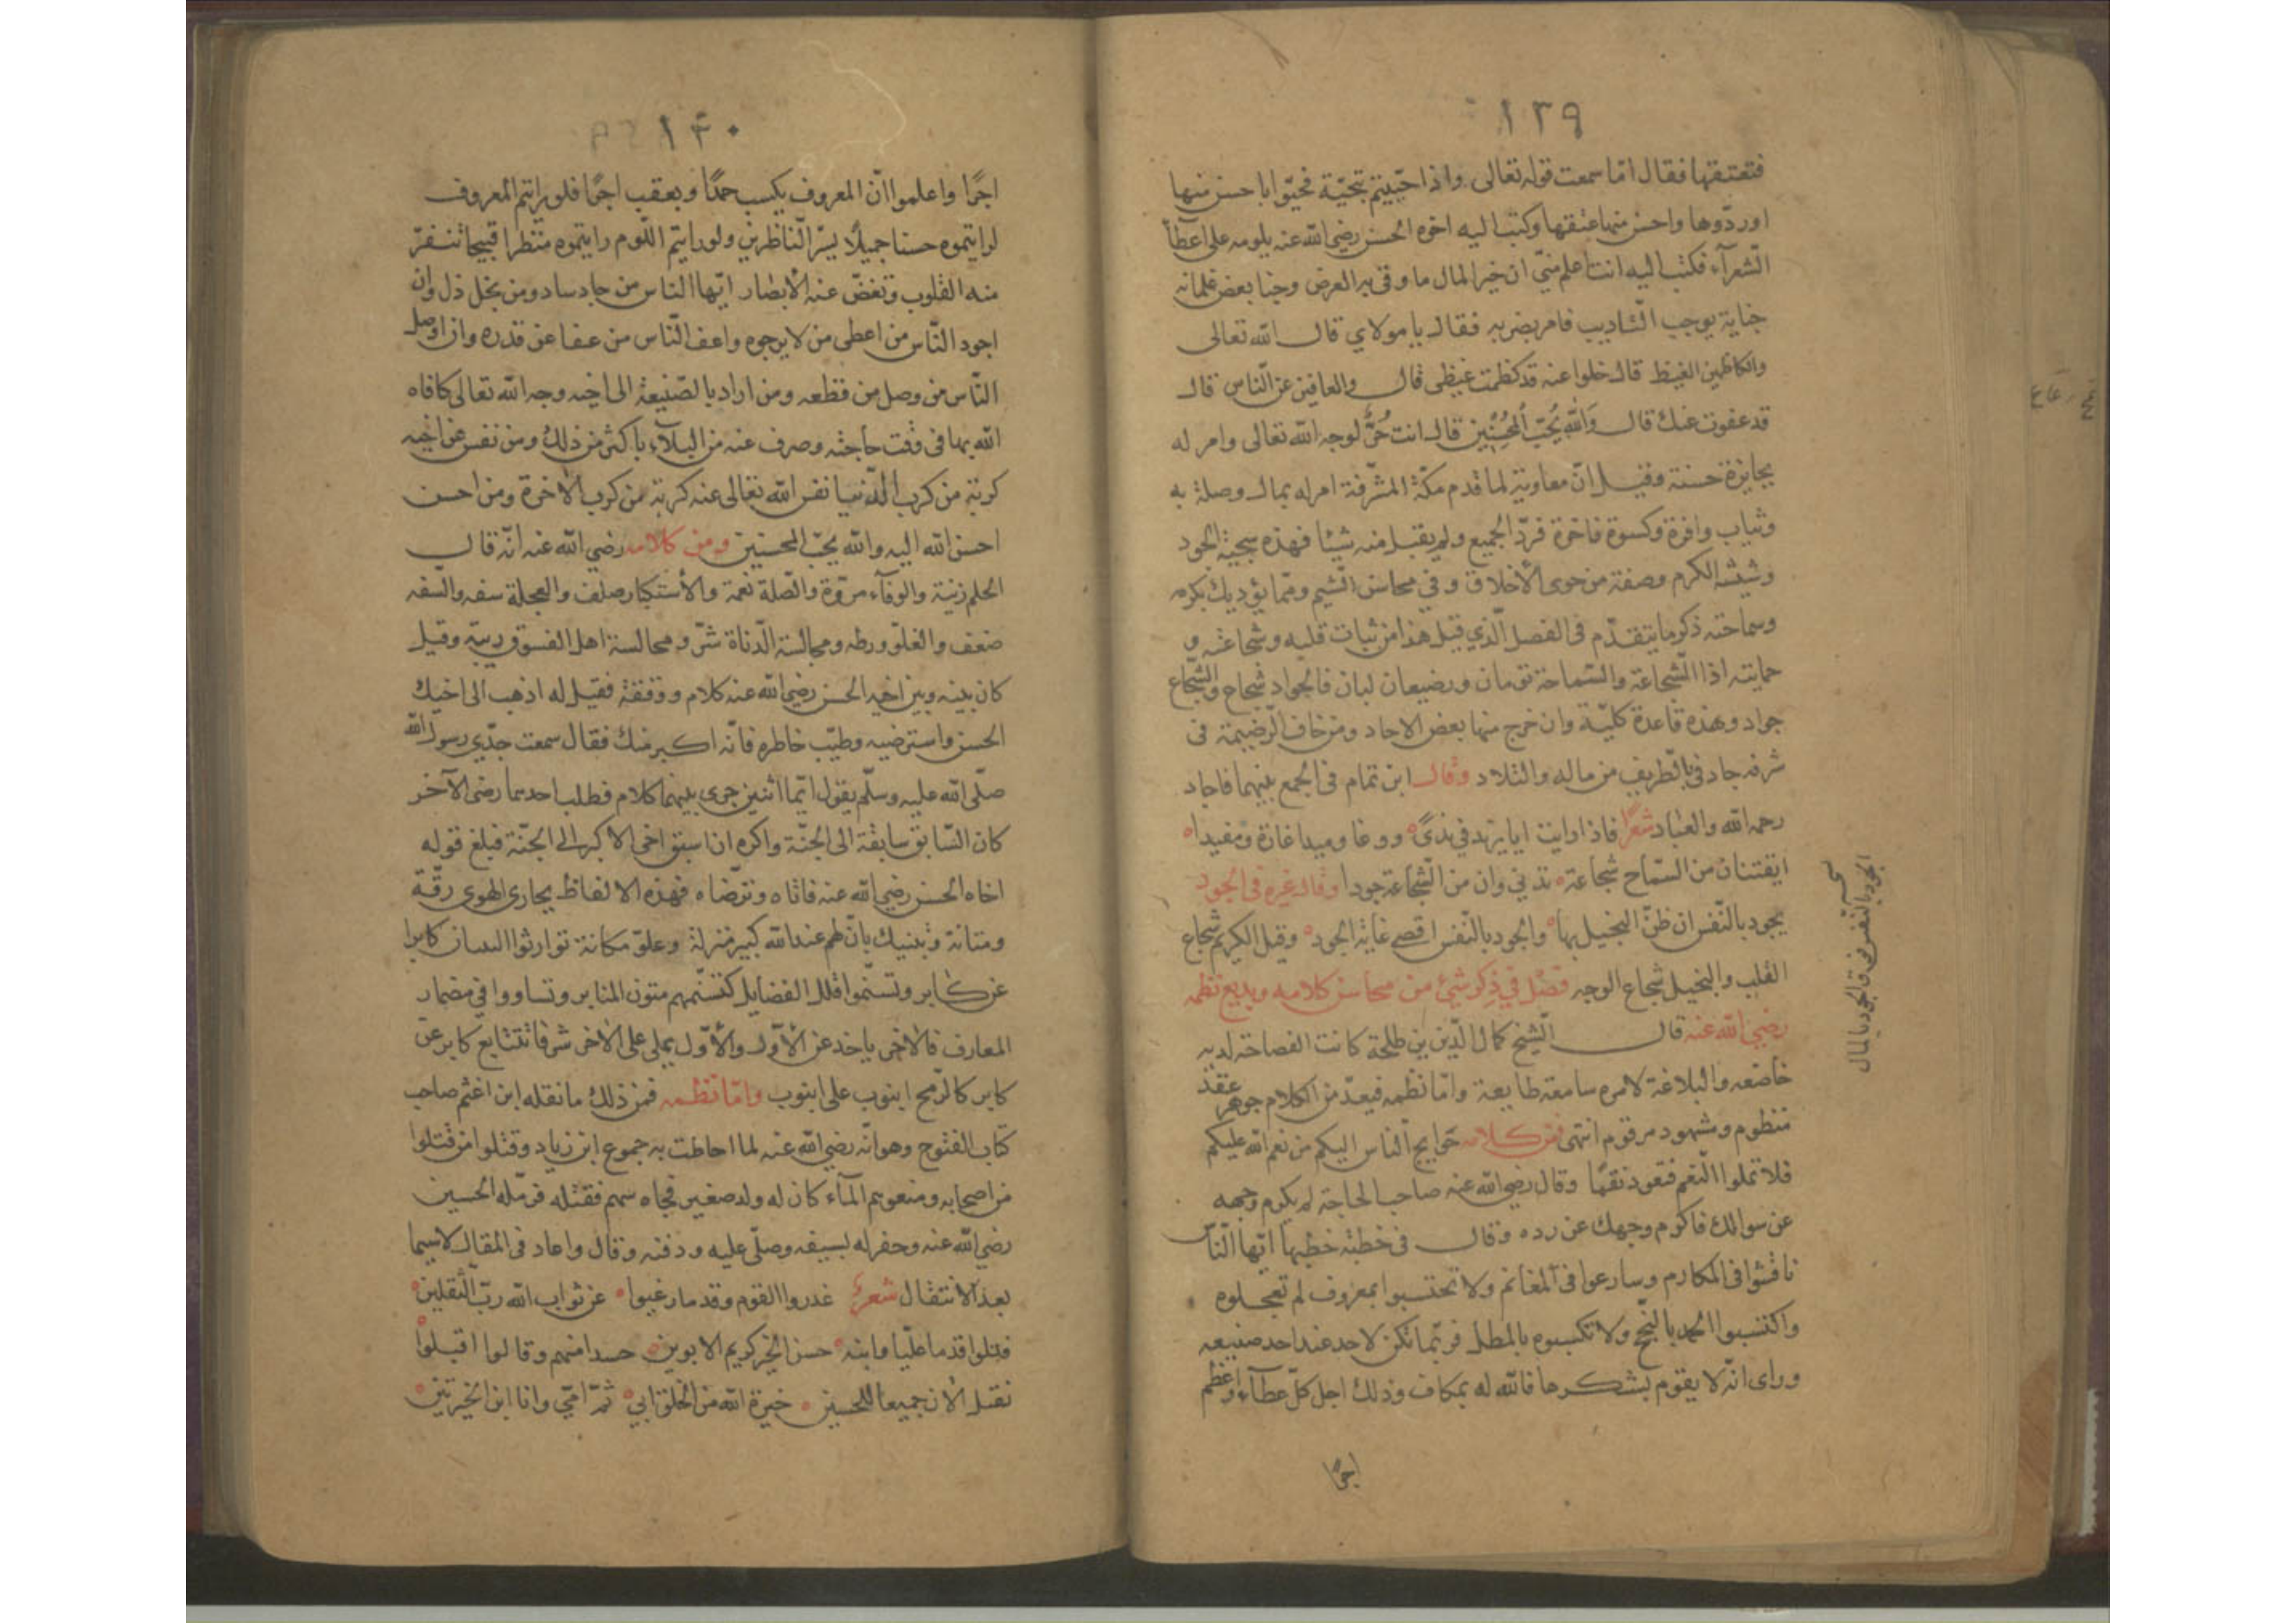 ١٣٩
فتعتقها فقال اما سمعت قوله تعالى واذا حيّيتم بتحيّة فحيّوا باحسن منها
اوردّوها واحسن منها عتقها وكتب اليه اخوه الحسن رضي الله عنه يلومه على اعطآ
الشعرآء فكتب اليه انت اعلم منّي ان خير المال ما وقى به العرض وجنا بعض غلمانه
جناية يوجب التاديب فامر بضربه فقال يا مولاي قال الله تعالى
والكاظمين الغيظ قال خلوا عنه قد كظمت غيظى قال والعافين عن النّاس قال
قد عفوت عنك قال وَاللّٰه يُحِبّ المُحْسِنِين قال انت حُرٌّ لوجه الله تعالى وامر له
بجايزة حسنة وقيل انّ معاوية لما قدم مكّة المشرّفة امر له بمال وصلة به
وثياب وافرة وكسوة فاخرة فردّ الجميع ولم يقبل منه شيئا فهذه سجية الجود
وشيشه الكرم وصفة من حوى الأخلاق وفي محاسن الشيم وممّا يؤديك بكرمه
وسماحته ذكر ما يتقدّم فى الفصل الّذي قبل هذا من ثبات قلبه وشجاعته و
حمايته اذا الشجاعة والسّماحة تومان ورضيعان لبان فالجواد شجاع والشّجاع
جواد وهذه قاعدة كليّة وان خرج منها بعض الاحاد ومن خاف الرضيمة فى
شرفه جاد فى بالطريف من ماله والتلاد وقال ابن تمام فى الجمع بينهما فاجاد
رحمه الله والعباد شعرًا فاذا رايت ابا يزيد في ندىً ووغا ومبدا غارة ومفيدا
ايقتنان من السّماح شجاعة تدني وان من الشّجاعة جودا وقال غيره فى الجود
يجود بالنّفس ان ظنّ البخيل بها والجود بالنّفس اقصى غاية الجود وقيل الكريم شجاع
القلب والبخيل شجاع الوجه فصل في ذكر شئ من محاسن كلامه وبديع نظمه
رضي الله عنه قال الشيخ كمال الدّين بن طلحة كانت الفصاحة لديه
خاضعه والبلاغة لامره سامعة طايعة وامّا نظمه فيعدّ من الكلام جوهر عقد
منظوم وشهود مرقوم انتهى فمن كلامه حوايج الناس اليكم من نعم الله عليكم
فلا تملوا النّعم فتعود نقمًا وقال رضي الله عنه صاحب الحاجة لم يكرم وجهه
عن سوالك فاكرم وجهك عن رده وقال فى خطبة خطبها ايّها النّاس
نافسوا فى المكارم وسارعوا فى المغانم ولا تحتسبوا بمعروف لم تعجلوه
واكتسبوا الحمد بالنّجح ولا تكسبوه بالمطل فربّما تكن لاحد عند احد صنيعه
وراى انّه لا يقوم بشكرها فالله له بمكاف وذلك اجل كلّ عطآء واعظم
اجرًا
الجود بالنفس فوق الجود بالمال
١٤٠
اجرًا واعلموا انّ المعروف يكسب حمدًا ويعقب اجرًا فلو رايتم المعروف
لرايتموه حسنا جميلًا يسرّ النّاظرين ولو رايتم اللّوم رايتموه منظرا قبيحا تنفرّ
منه القلوب وتغضّ عنه الأبصار ايّها الناس من جاد ساد ومن بخل ذل وان
اجود النّاس من اعطى من لا يرجوه واعف النّاس من عفا عن قدره وان اوصل
النّاس من وصل من قطعه ومن اراد بالصّنيعة الى اخيه وجه الله تعالى كافاه
الله بها فى وقت حاجته وصرف عنه من البلآء باكثر من ذلك ومن نفس عن اخيه
كربة من كرب الدّنيا نفس الله تعالى عنه كربة من كرب الاخرة ومن احسن
احسن الله اليه والله يحبّ المحسنين ومن كلامه رضي الله عنه انّه قال
الحلم زينة والوفآء مروّة والصّلة نعمة والأستكبار صلف والعجلة سفه والسّفه
ضعف والغلوّ ورطه ومجالسة الدّناة شرّ ومجالسة اهل الفسوق ريبة وقيل
كان بينه وبين اخيه الحسن رضي الله عنه كلام ووقفة فقيل له اذهب الى اخيك
الحسن واسترضيه وطيّب خاطره فانّه اكبر منك فقال سمعت جدّي رسول الله
صلّى الله عليه وسلّم يقول ايّما اثنين جرى بينهما كلام فطلب احدهما رضى الآخر
كان السّابق سابقة الى الجنّة واكره ان اسبق اخى الاكبر الى الجنّة فبلغ قوله
اخاه الحسن رضي الله عنه فاتاه وترّضاه فهذه الالفاظ يجارى الهوى رقّة
ومتانة وتبنيك بانّ لهم عند الله كبير منزلة وعلوّ مكانة توارثوا البيان كابرا
عن كابر وتسنّموا قلل الفضايل كتسنّمهم متون المنابر وتساووا في مضمار
المعارف فالاخر ياخد عن الأول والأوّل يملى على الاخر شرفا تتابع كابر عن
كابر كالرّمح انبوب على انبوب وامّا نظمه فمن ذلك ما نقله ابن اعثم صاحب
كتاب الفتوح وهو انّه رضي الله عنه لما احاطت به جموع ابن زياد وقتلوا من قتلوا
من اصحابه ومنعوهم المآء كان له ولد صغير فجاه سهم فقتله فرمّله الحسين
رضي الله عنه وحفر له بسيفه وصلّى عليه ودفنه وقال واعاد فى المقال لاسيما
بعد الانتقال شعرٌ غدروا القوم وقدما رغبوا عن ثواب الله ربّ الثقلين
قتلوا قدما عليّا وابنه حسن الخير كريم الابوين حسدا منهم وقالوا اقبلوا
نقتل الان جميعا للحسين خيرة الله من الخلق ابي ثمّ امّي وانا ابن الخيرتين